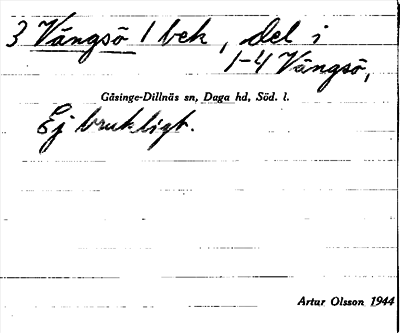 3 Vängsö 1 bek, del i
1-4 Vängsö,
Gåsinge-Dillnäs sn, Daga hd, Söd. l.
Ej brukligt.
Artur Olsson 1944